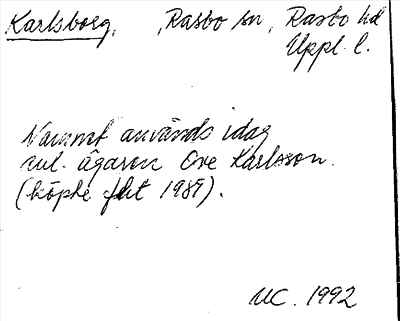 Karlsborg, , Rasbo sn, Rasbo hd
Uppl. l.
Namnet används idag
enl. ägaren Ove Karlsson.
(köpte fht 1989).
UC. 1992